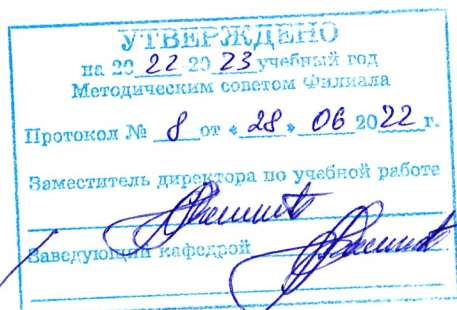 УТВЕРЖДЕНО
на 20 22 20 23 учебный год
Методическим советом Филиала
Протокол № 8 от «28» 06 2022 г.
Заместитель директора по учебной работе
Заведующий кафедрой